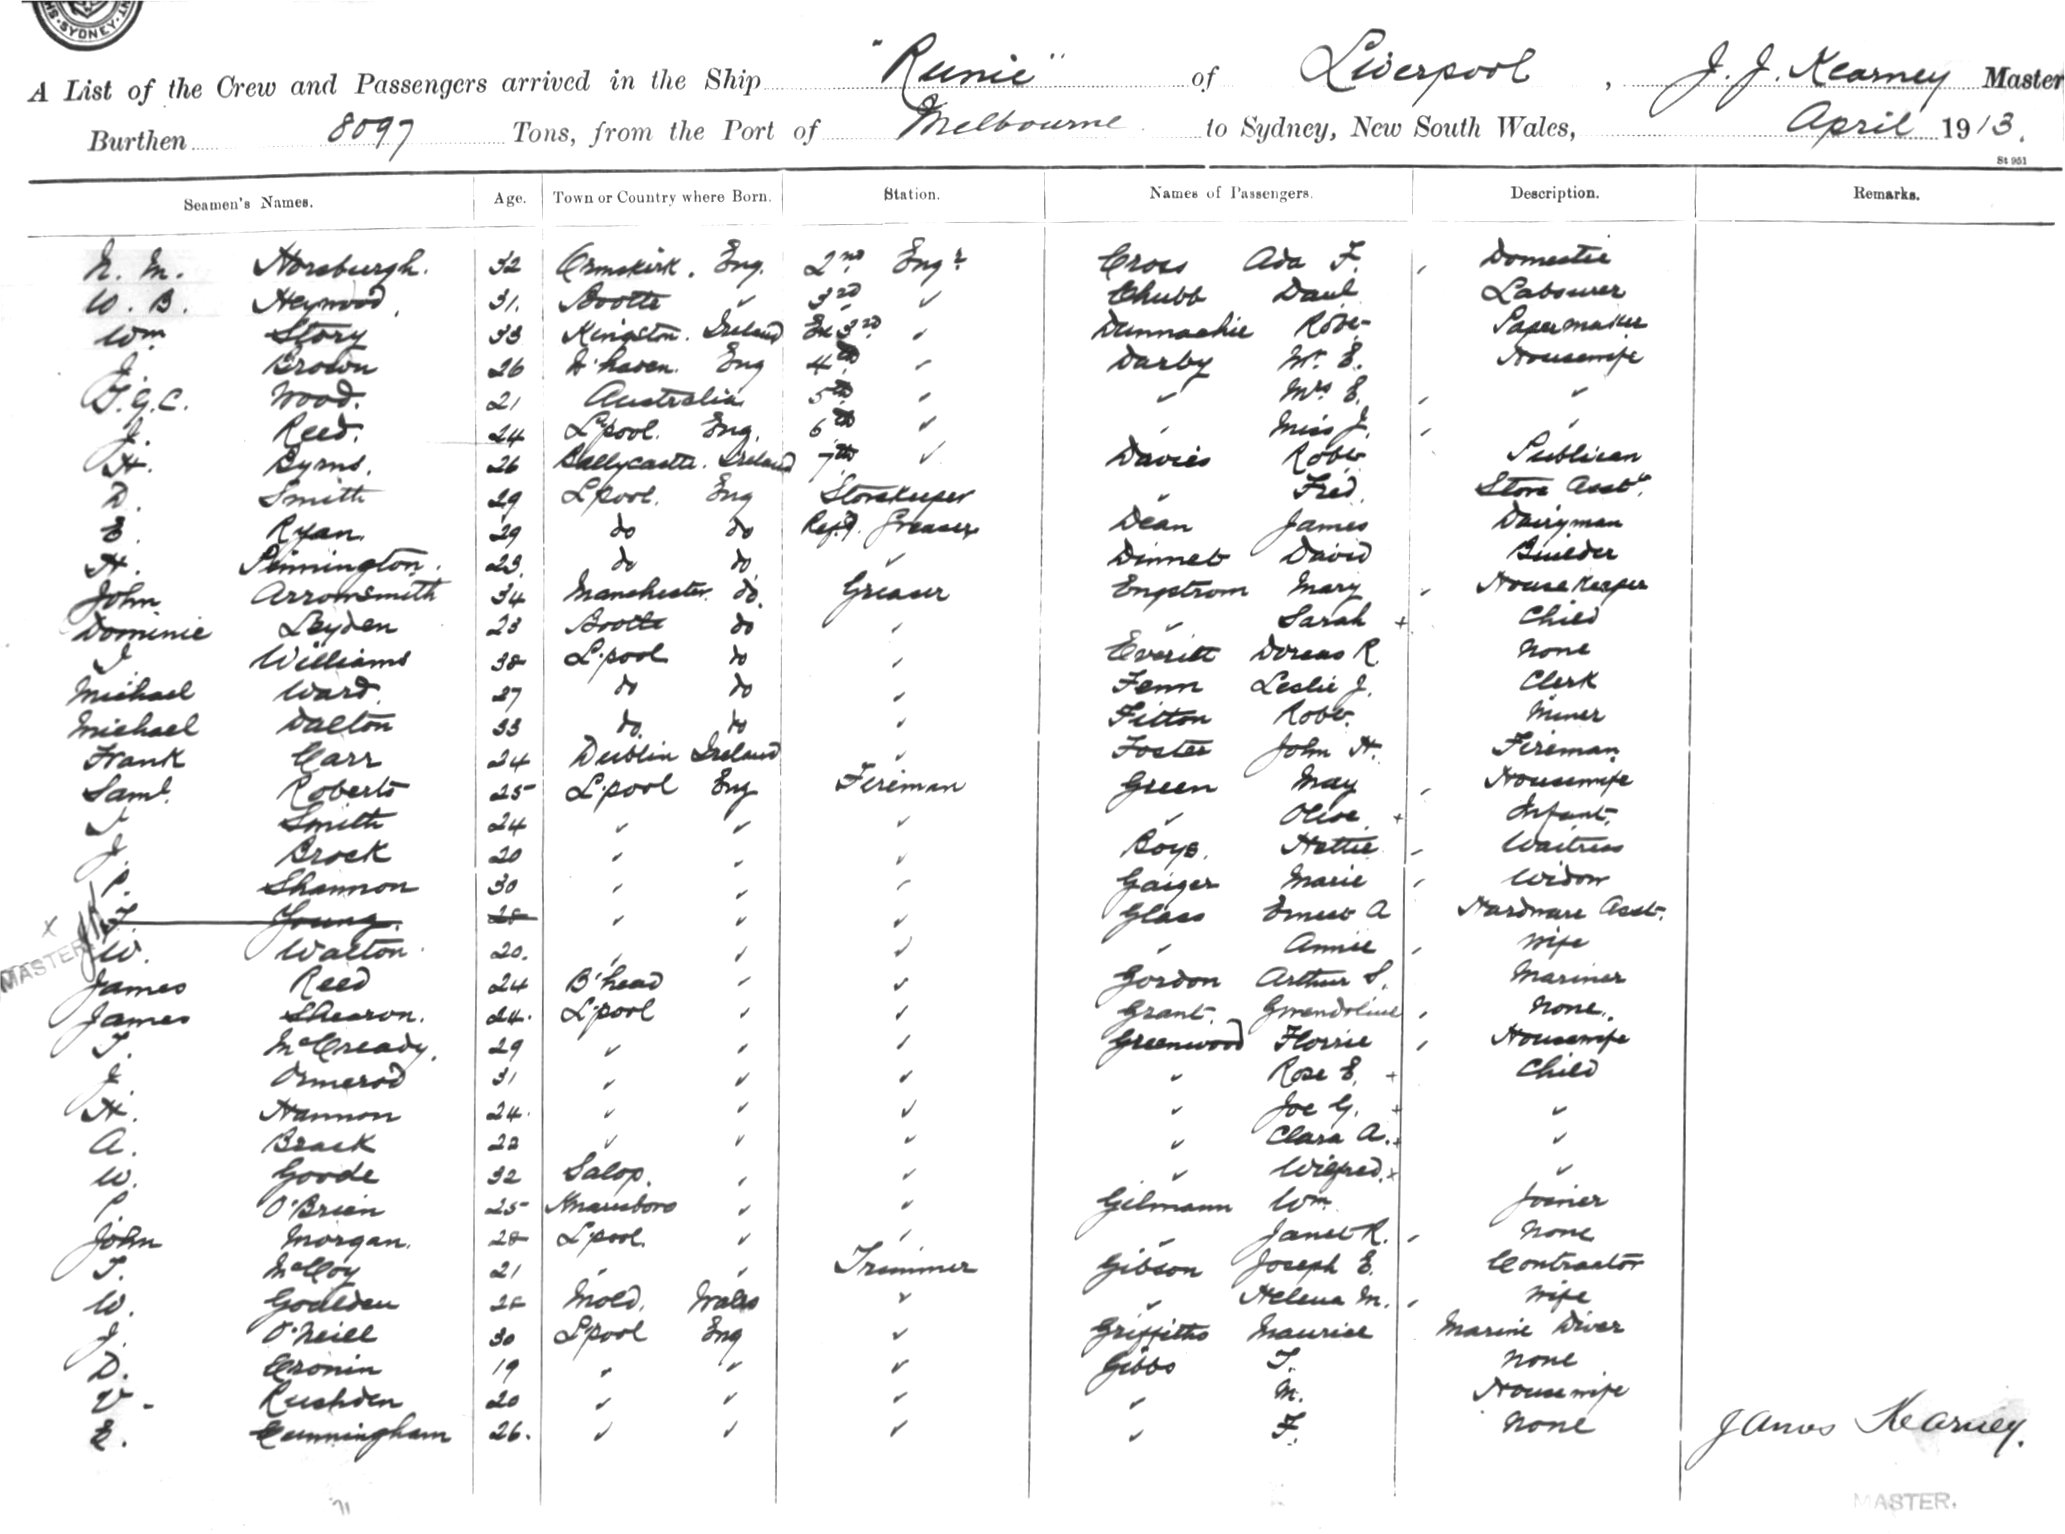 SYDNEY
A List of the Crew and Passengers arrived in the Ship "Runic" of Liverpool, J. J. Kearney Master
Burthen 8097 Tons, from the Port of Melbourne to Sydney, New South Wales, April 1913.
St 951
Seamen's Names. Age. Town or Country where Born. Station. Names of Passengers. Description. Remarks.
N. M. Horsburgh. 32 Ormskirk. Eng. 2nd Engr Cross Ada F. Domestic
W. B. Heywood, 31. Bootle " 3rd " Chubb Danl Labourer
Wm Story 33 Kingston. Ireland Ex 3rd " Dunnachie Robt Papermaker
J. Brown 26 W'haven. Eng 4th " Darby Mr E. Housewife
G.C. Wood. 21 Australia 5th " " Mrs E. "
J. Reed. 24 L'pool. Eng. 6th " " Miss J. "
H. Byrns. 26 Ballycastle. Ireland 7th " Davies Robt Publican
D. Smith 29 L'pool. Eng Storekeeper " Fred. Store Asst.
E. Ryan. 29 do do Refg. Greaser Dean James Dairyman
H. Pennington. 23. do do " Dinnet David Builder
John Arrowsmith 34 Manchester do. Greaser Engstrom Mary Housekeeper
Dominic Leyden 23 Bootle do " " Sarah + Child
J Williams 38 L'pool do " Everitt Dorcas R. None
Michael Ward. 27 do do " Fenn Leslie J. Clerk
Michael Dalton 33 do. do " Fitton Robt. Miner
Frank Carr 24 Dublin Ireland " Foster John H. Fireman
Saml. Roberts 25 L'pool Eng Fireman Green May Housewife
J Smith 24 " " " " Olive + Infant.
J. Brock 20 " " " Boys. Hettie Waitress
P. Shannon 30 " " " Gaiger Marie Widow
X T. Young. 28 " " " Glass Ernest A Hardware Asst.
MASTER W. Walton 20. " " " " Annie Wife
James Reed 24 B'head " " Gordon Arthur S. Mariner
James Shearon. 24. L'pool " " Grant. Gwendoline None.
T. McCready. 29 " " " Greenwood Florrie Housewife
J. Ormerod 31 " " " " Rose E. + Child
H. Hannon 24. " " " " Joe G. + "
A. Brack 22 " " " " Clara A. + "
W. Goode 32 Salop. " " " Wilfred. + "
P. O'Brien 25 Knaresboro " " Gilmann Wm Joiner
John Morgan. 28 L'pool. " " " Janet R. None
T. McCoy 21 " " Trimmer Gibson Joseph E. Contractor
W. Goulden 28 Mold. Wales " " Helena M. Wife
J. O'Neill 30 L'pool Eng " Griffiths Maurice Marine Diver
D. Cronin 19 " " " Gibbs T. None
V. Rushden 20 " " " " M. Housewife
E. Cunningham 26. " " " " F. None
James Kearney.
MASTER.